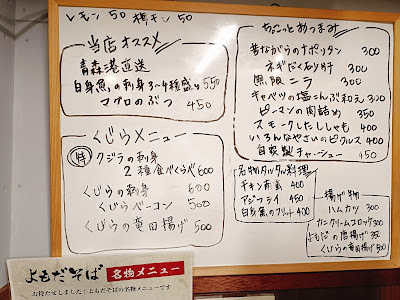 レモン 50 梅干し 50
当店オススメ
青森港直送
自身魚の刺身 3〜4種盛り 550
マグロのぶつ 450
くじらメニュー
特 クジラの刺身
2種食べくらべ 600
くじらの刺身 600
くじらベーコン 500
くじらの竜田揚げ 500
ちょこっとおつまみ
昔ながらのナポリタン 300
ネギだくねり汁 300
無限ニラ 300
キャベツの塩こんぶ和え 300
ピーマンの肉詰め 350
スモークしたししゃも 400
いろんなやさいのピクルス 400
自家製チャーシュー 450
名物タルタル料理
チキン南蛮 400
アジフライ 450
白身魚のフリット 400
揚げ物
ハムカツ 300
カニクリームコロッケ 300
よもだの唐揚げ 350
くじらの竜田揚げ 500
よもだそば 名物メニュー
お待たせしました!よもだそばの名物メニューです